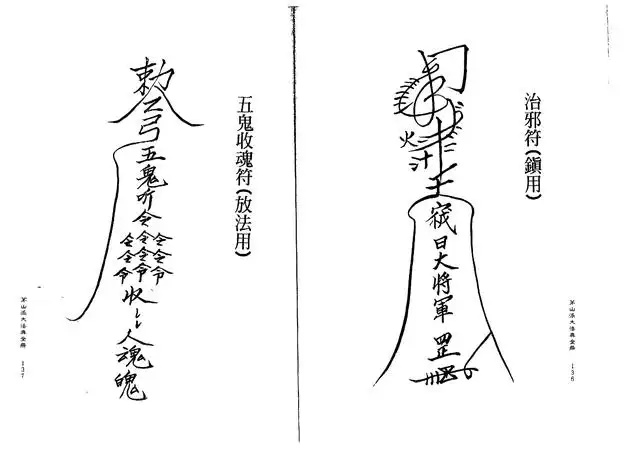 治邪符(鎮用)
火
王
日大將軍罡
茅山派大法典全冊 136
五鬼收魂符(放法用)
勅
弓五鬼听令
令令令
令令令
令令令
收
人魂魄
茅山派大法典全冊 137